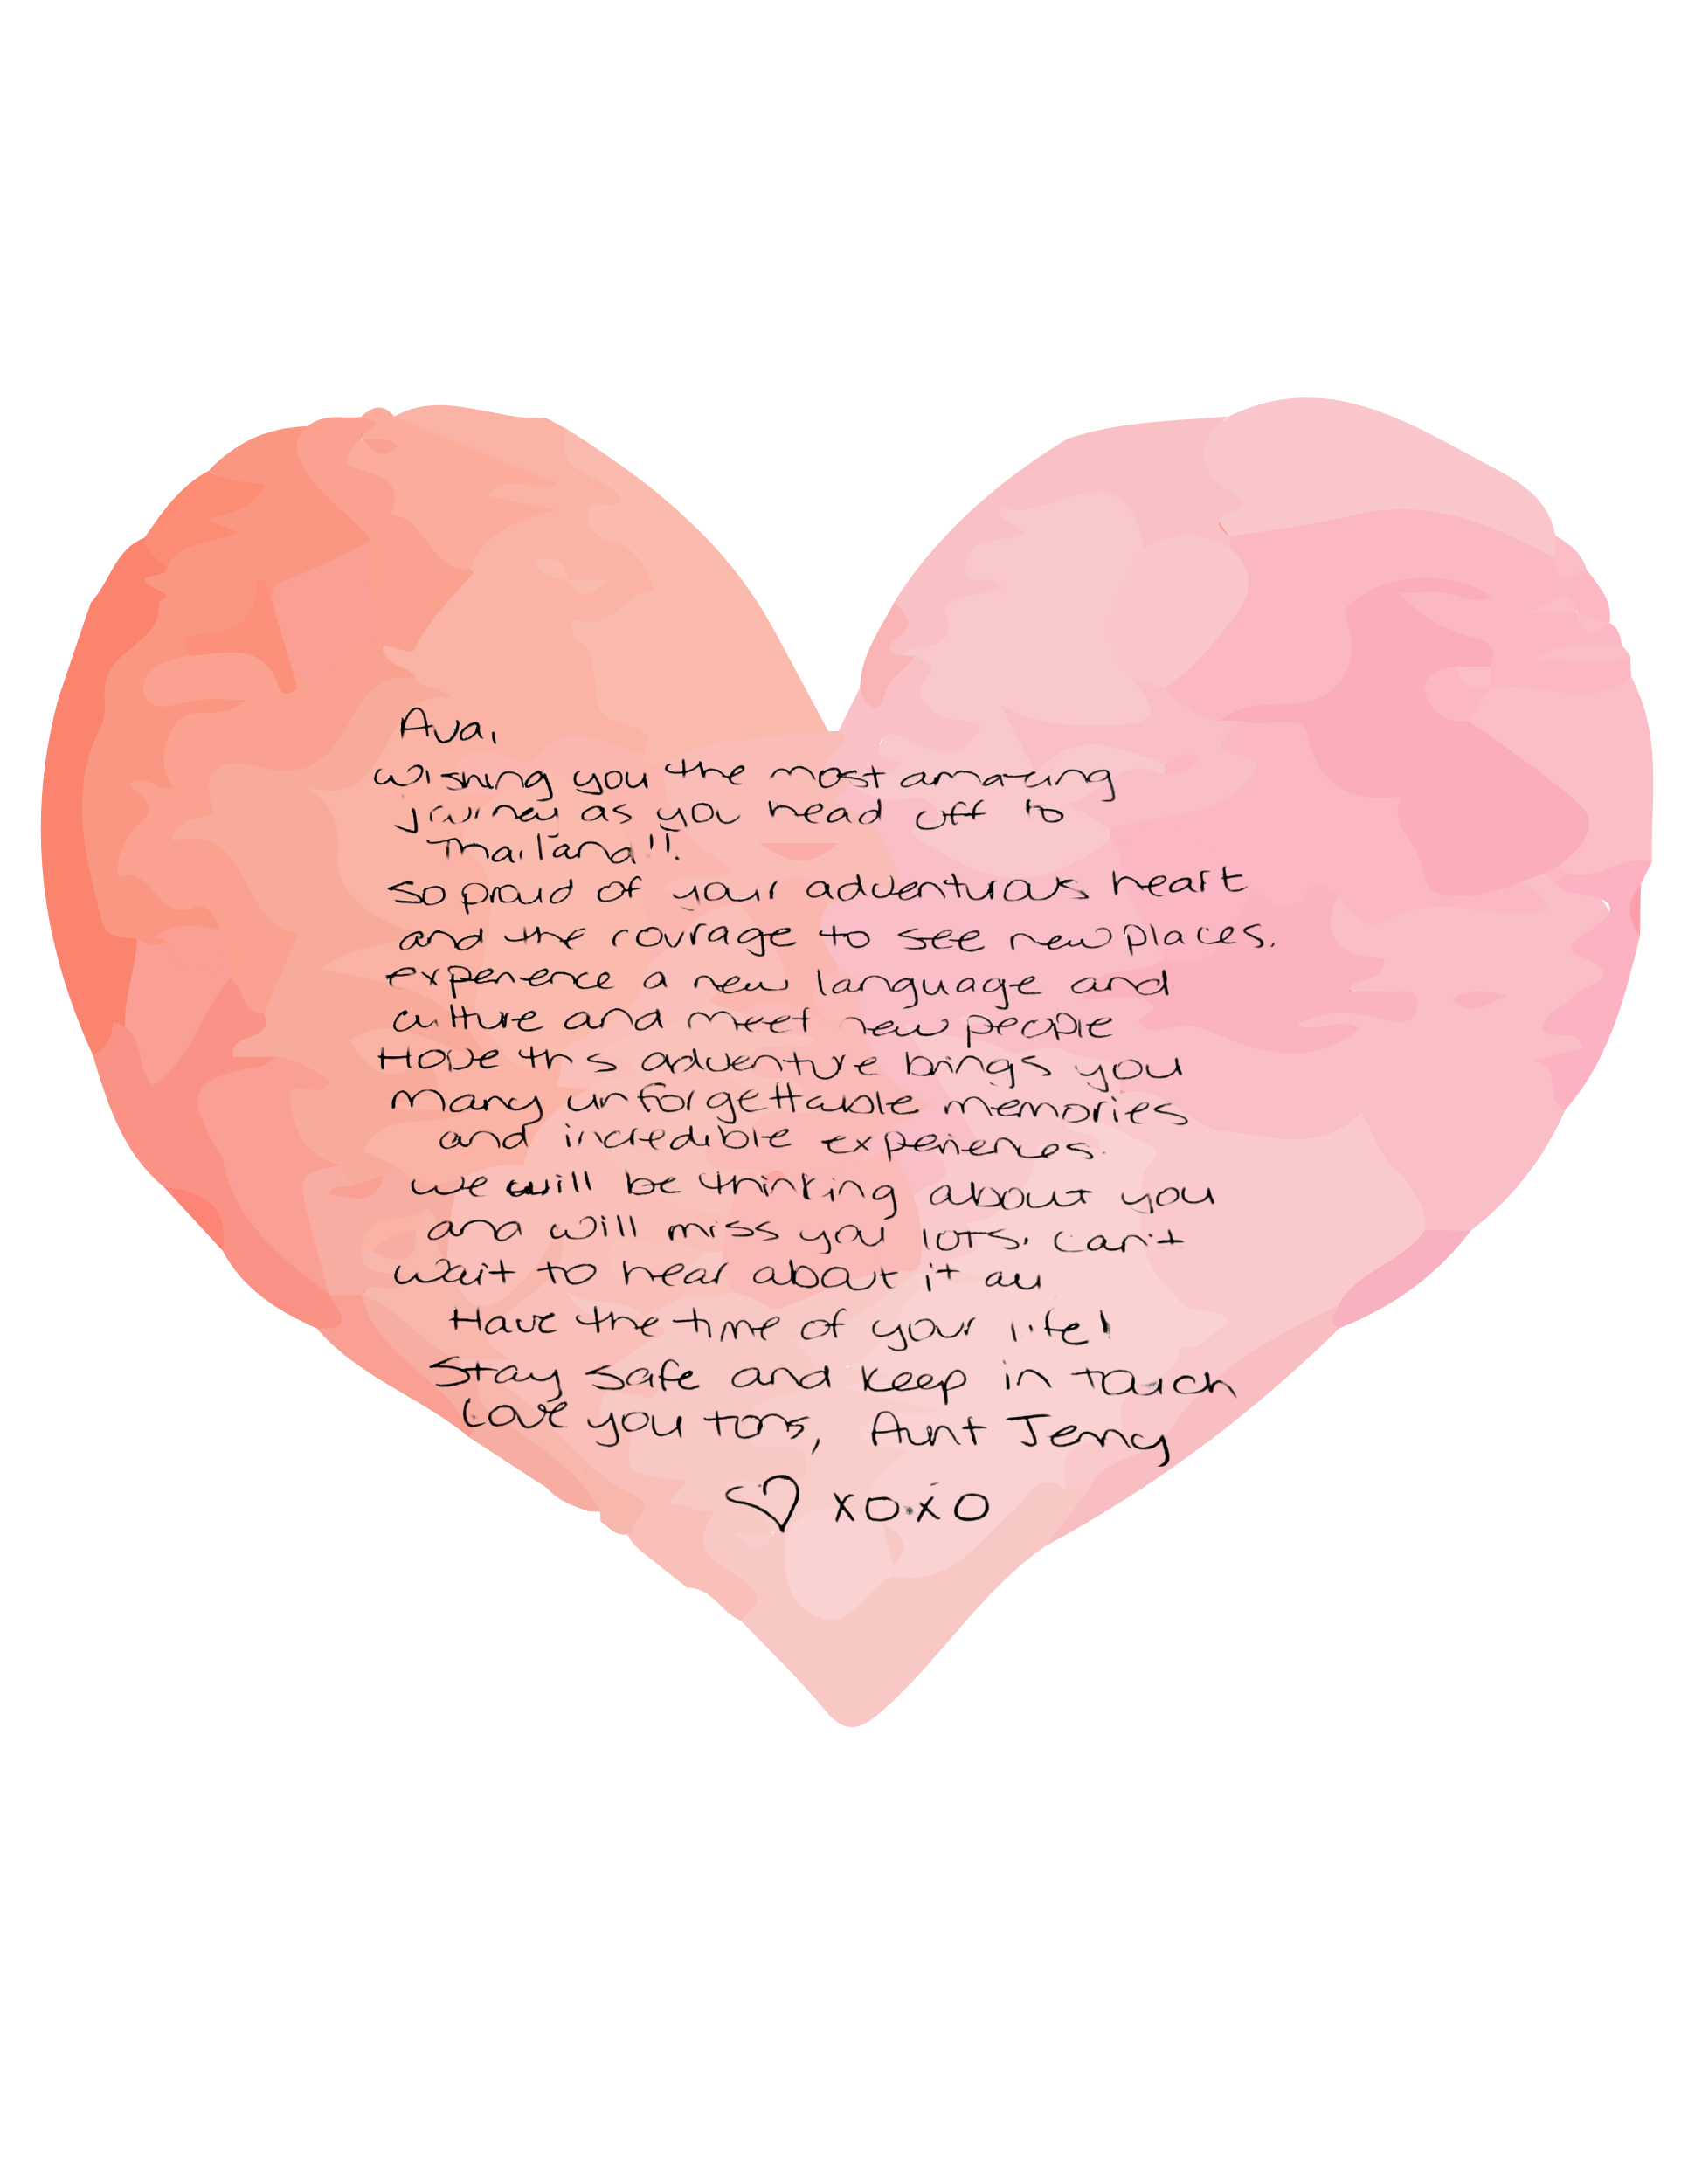 Ava,
Wishing you the most amazing
journey as you head off to
Thailand!!
So proud of your adventurous heart
and the courage to see new places.
experience a new language and
culture and meet new people
Hope this adventure brings you
many unforgettable memories
and incredible experiences.
We will be thinking about you
and will miss you lots. Can't
wait to hear about it all
Have the time of your life!
Stay safe and keep in touch
Love you tons, Aunt Jenny
♡ xoxo